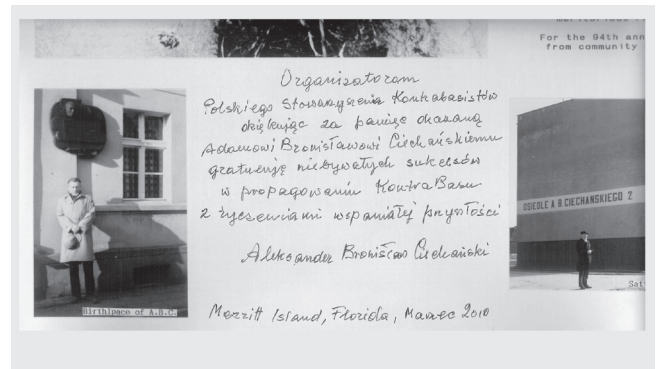 For the 94th ann
from community
Organizatorom
Polskiego Stowarzyszenia Kontrabasistów
dziękując za pamięć okazaną
Adamowi Bronisławowi Ciechańskiemu
gratuluję niebywałych sukcesów
w propagowaniu KontraBasu
z życzeniami wspaniałej przyszłości
Aleksander Bronisław Ciechański
Merritt Island, Florida, Marzec 2010
Birthlpace of A.B.C.
OSIEDLE A B CIECHAŃSKIEGO 2
Sat